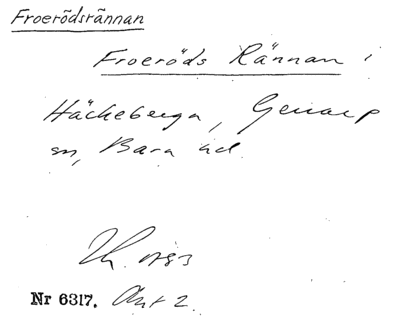 Froerödsrännan
Froeröds Rännan i
Häckeberga, Genarp
sn, Bara hd.
Nr 6317.